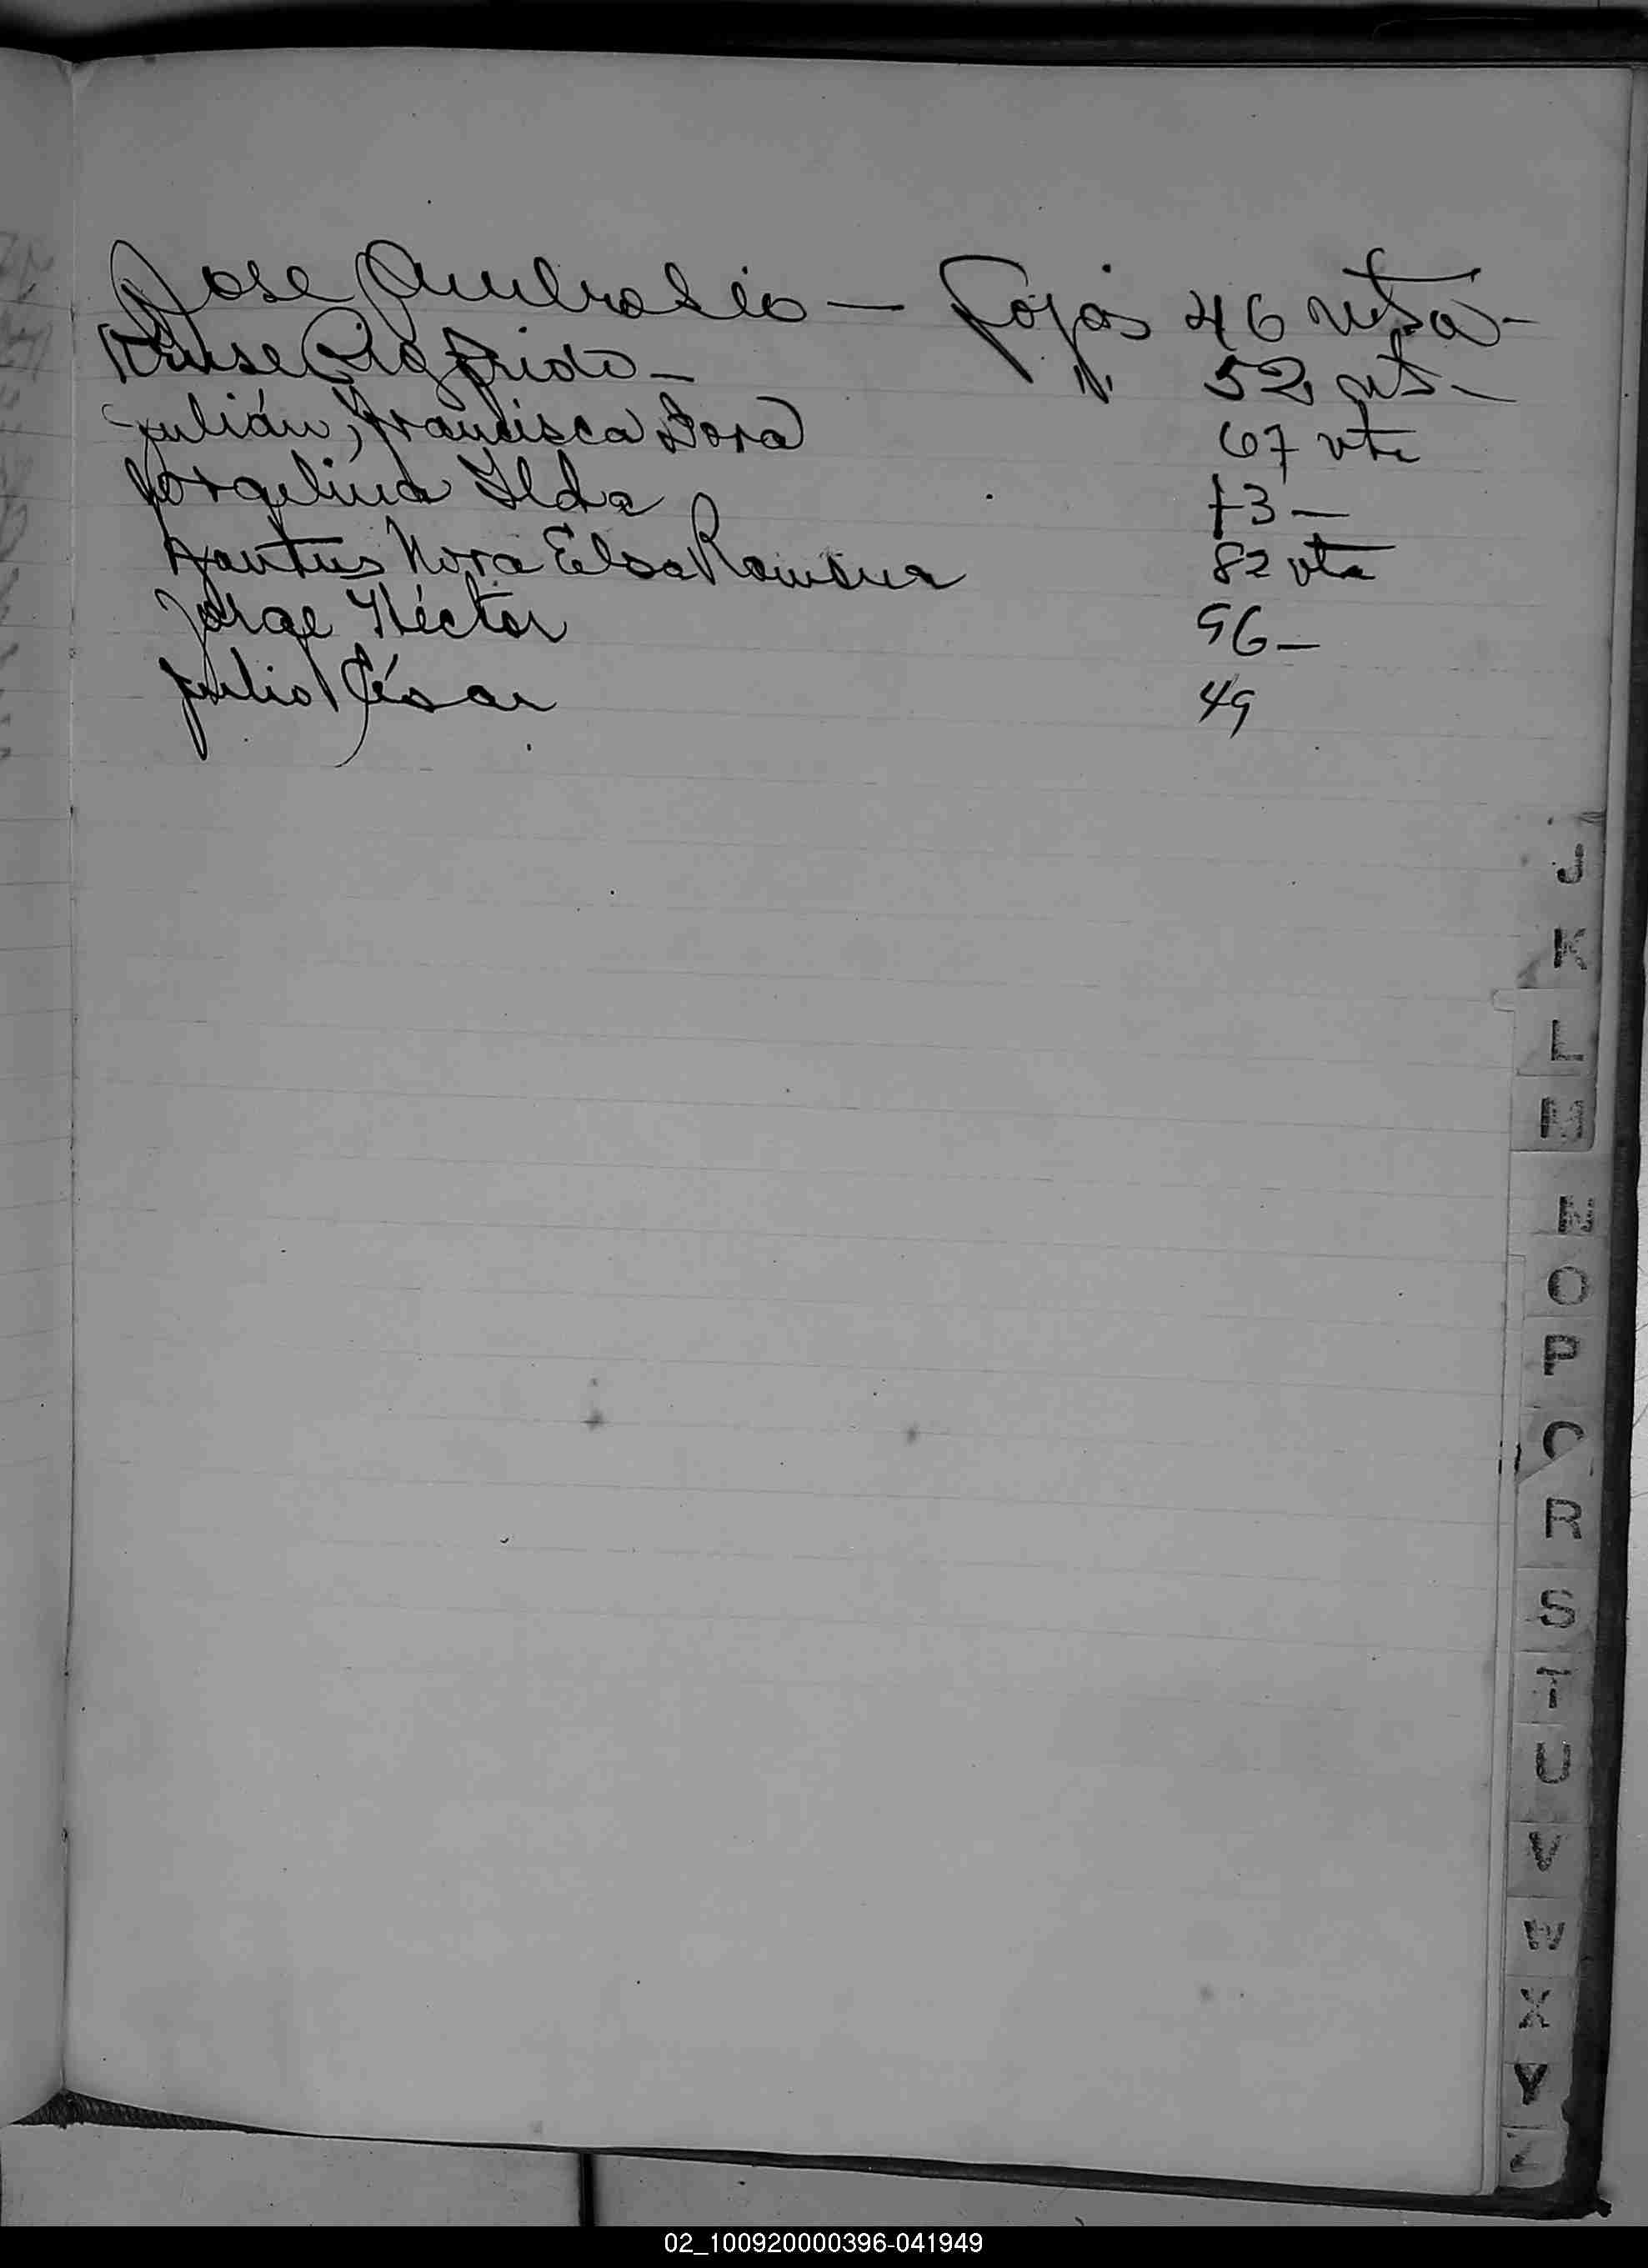 Jose Ambrosio — Fojas 46 vta -
Kruse Sigfrido — " 52 vta -
Julián, Francisca Dora 67 vta
Jorgelina Ilda 73 —
Nora Elsa Ramona 82 vta
Jorge Héctor 96 —
Julio César 49
J
K
L
M
N
O
P
R
S
T
U
V
W
X
Y
02_100920000396-041949